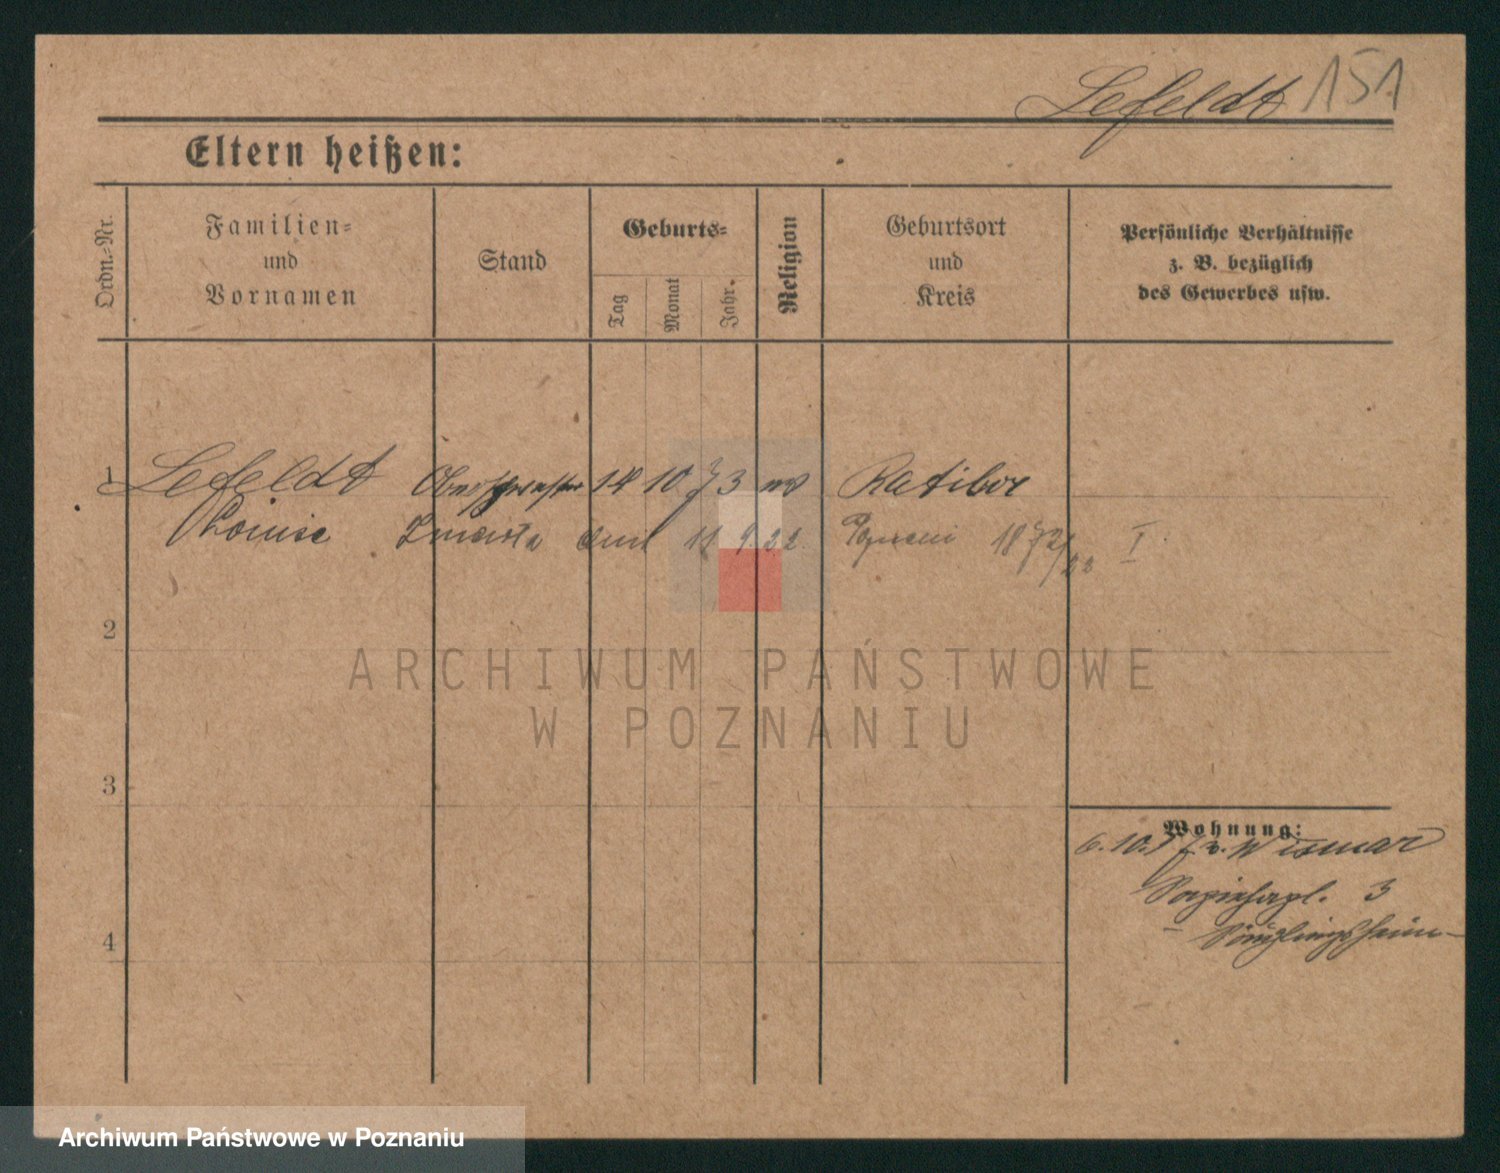 Lefeldt 151
Eltern heißen:
Ordn.-Nr.
Familien-
und
Vornamen
Stand
Geburts-
Tag
Monat
Jahr.
Religion
Geburtsort
und
Kreis
Persönliche Verhältnisse
z. B. bezüglich
des Gewerbes usw.
1 Lefeldt Oberschwester 14 10 73 ev Ratibor
Louise Zmarła dnia 11 9 22 Poznań 1872/22 I
2
3
4
Wohnung:
6.10.17 v. Wismar
3
Säuglingsheim
ARCHIWUM PAŃSTWOWE
W POZNANIU
Archiwum Państwowe w Poznaniu